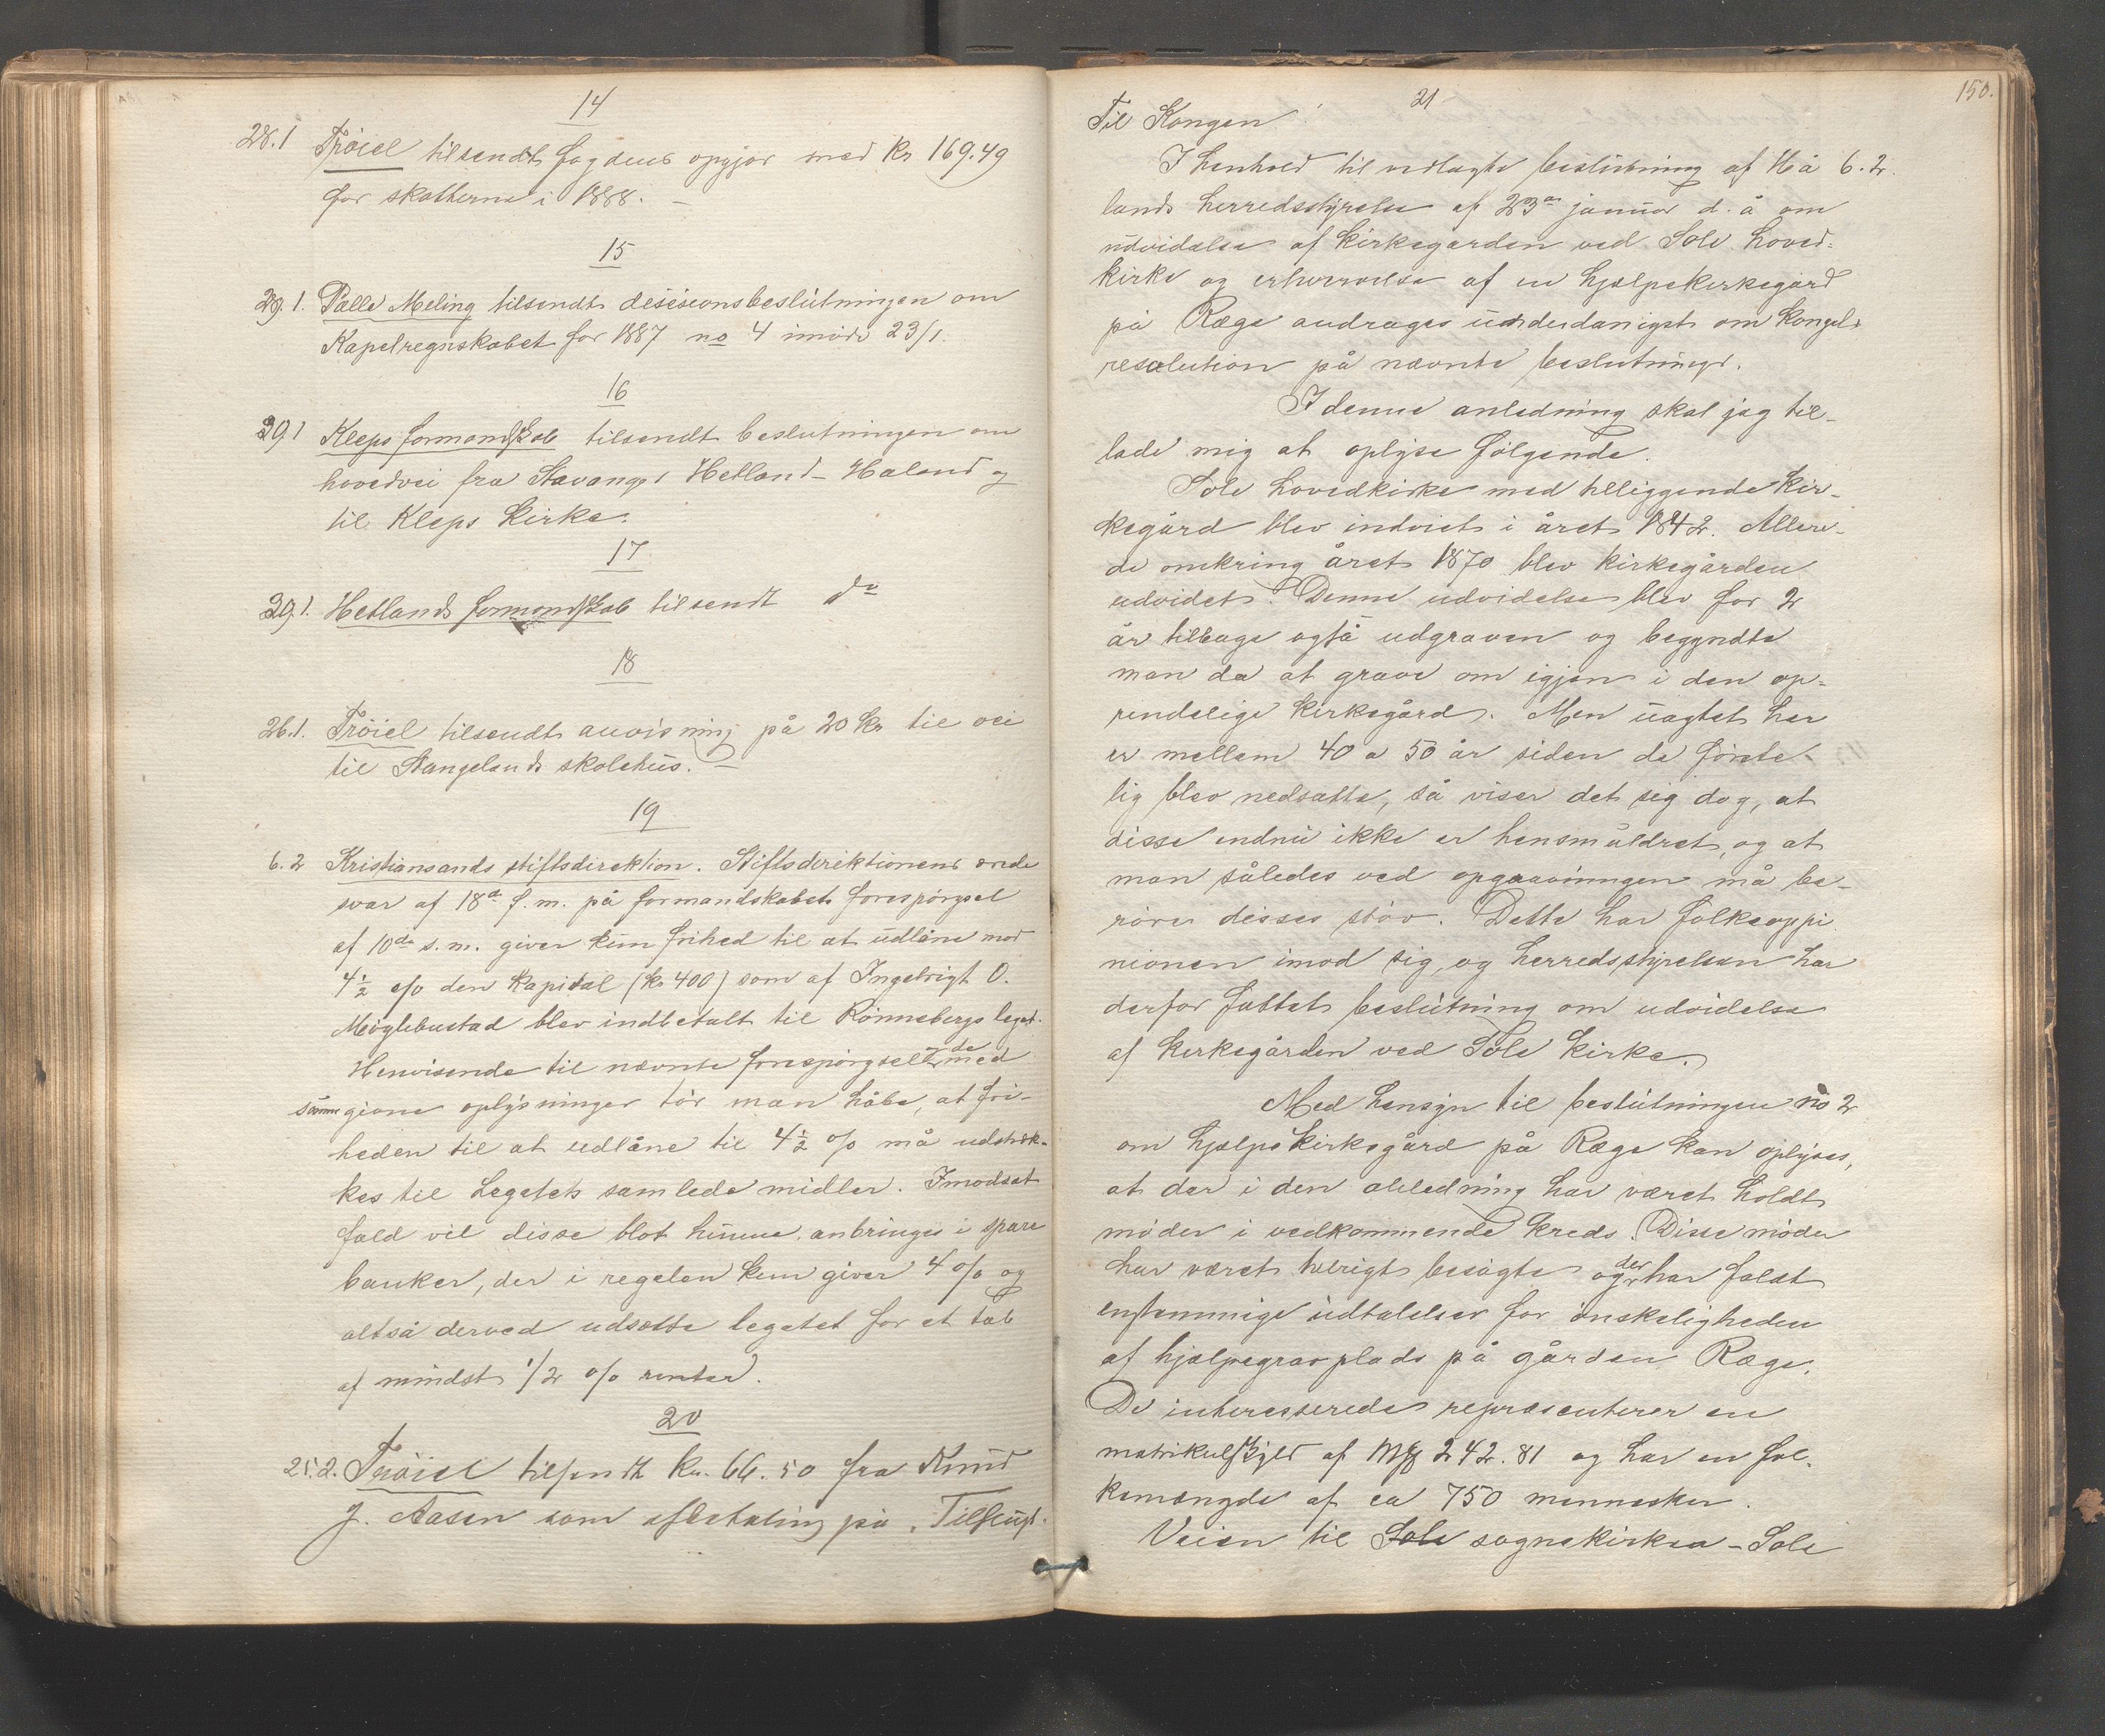 14
28.1 Tröiel tilsendt fogdens opgjør med Kr 169.49
for skatterne i 1888. –
15
29.1. Pælle Meling tilsendt desisionsbeslutningen om
Kapelregnskabet for 1887 no 4 i møde 23/1.
16
29.1 Kleps formandskab tilsendt beslutningen om
hovedvei fra Stavanger Hetland – Haland og
til Kleps kirke.
17
29.1. Hetlands formandskab tilsendt do
18
26.1. Tröiel tilsendt anvisning på 20 kr til vei
til Stangelands skolehus. –
19
6.2 Kristiansands stiftsdirektion. Stiftsdirektionens ærede
svar af 18de f.m. på formandskabets forespørgsel
af 10de s.m. giver kun frihed til at udlåne mod
4½ o/o den Kapital (kr 400) som af Ingebrigt O.
Møglebustad blev indbetalt til Rønnebergs legat.
Henvisende til nævnte forespørgsel og de med
samme givne oplysninger tør man håbe, at fri-
heden til at udlåne til 4½ o/o må udstræk-
kes til Legatets samlede midler. I modsat
fald vil disse blot kunne anbringes i spare
banker, der i regelen kun giver 4 o/o og
altså derved udsætte legatet for et tab
af mindst 1/2 o/o renter.
20
25.2. Tröiel tilsendt kr. 66.50 fra Knud
J. Aasen som afbetaling på "Tilskudt.
150.
21
Til Kongen!
I henhold til vedlagte beslutning af Hå 6.2.
lands herredsstyrelse af 23de januar d. å om
udvidelse af kirkegården ved Sole hoved-
kirke og erhvervelse af en hjælpekirkegård
på Ræge andrages underdanigst om kongel.
resolution på nævnte beslutninger.
I denne anledning skal jeg til-
lade mig at oplyse følgende.
Sole hovedkirke med tilliggende kir-
kegård blev indviet i året 1842. Allere-
de omkring året 1870 blev kirkegården
udvidet. Denne udvidelse blev for 2
år tilbage også udgraven og begyndte
man da at grave om igjen i den op-
rindelige kirkegård. Men uagtet her
er mellem 40 a 50 år siden de første
lig blev nedsatte, så viser det sig dog, at
disse endnu ikke er hensmuldret, og at
man således ved opgravningen må be-
røre disses støv. Dette har folkeoppi
nionen imod sig, og herredsstyrelsen har
derfor fattet beslutning om udvidelse
af kirkegården ved Sole kirke.
Med hensyn til beslutningen no 2
om hjælpekirkegård på Ræge kan oplyses,
at der i den anledning har været holdt
møder i vedkommende kreds. Disse møder
har været talrigt besøgte og der har faldt
enstemmige udtalelser for ønskeligheden
af hjælpegravplads på gården Ræge.
De interesserede repræsenterer en
matrikulskyld af Mk 242.81 og har en fol-
kemængde af ca 750 mennesker.
Veien til Sole sognekirke – Sole